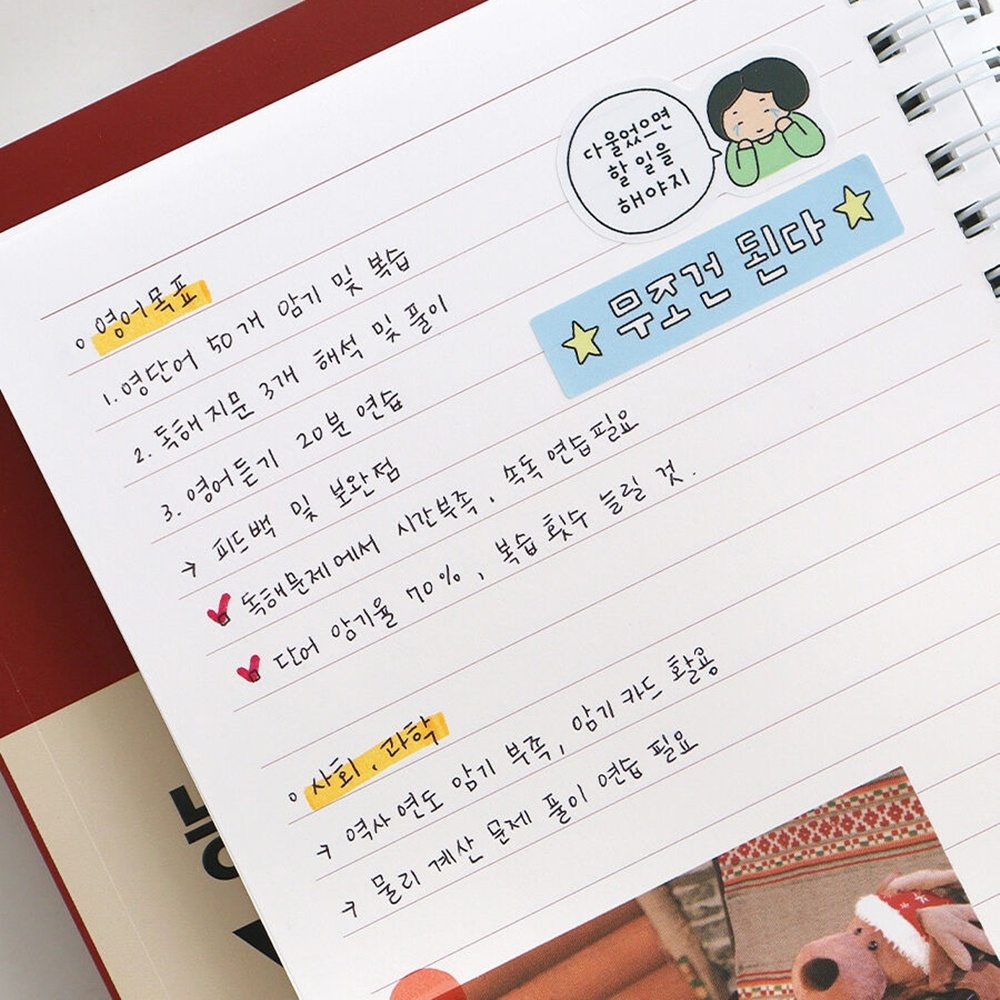 다울었으면
할 일을
해야지
무조건 된다
영어목표
1. 영단어 50개 암기 및 복습
2. 독해지문 3개 해석 및 풀이
3. 영어듣기 20분 연습
→ 피드백 및 보완점
독해문제에서 시간부족, 속독 연습필요
단어 암기율 70%, 복습 횟수 늘릴 것.
사회, 과학
→ 역사연도 암기 부족, 암기 카드 활용
→ 물리 계산 문제 풀이 연습 필요